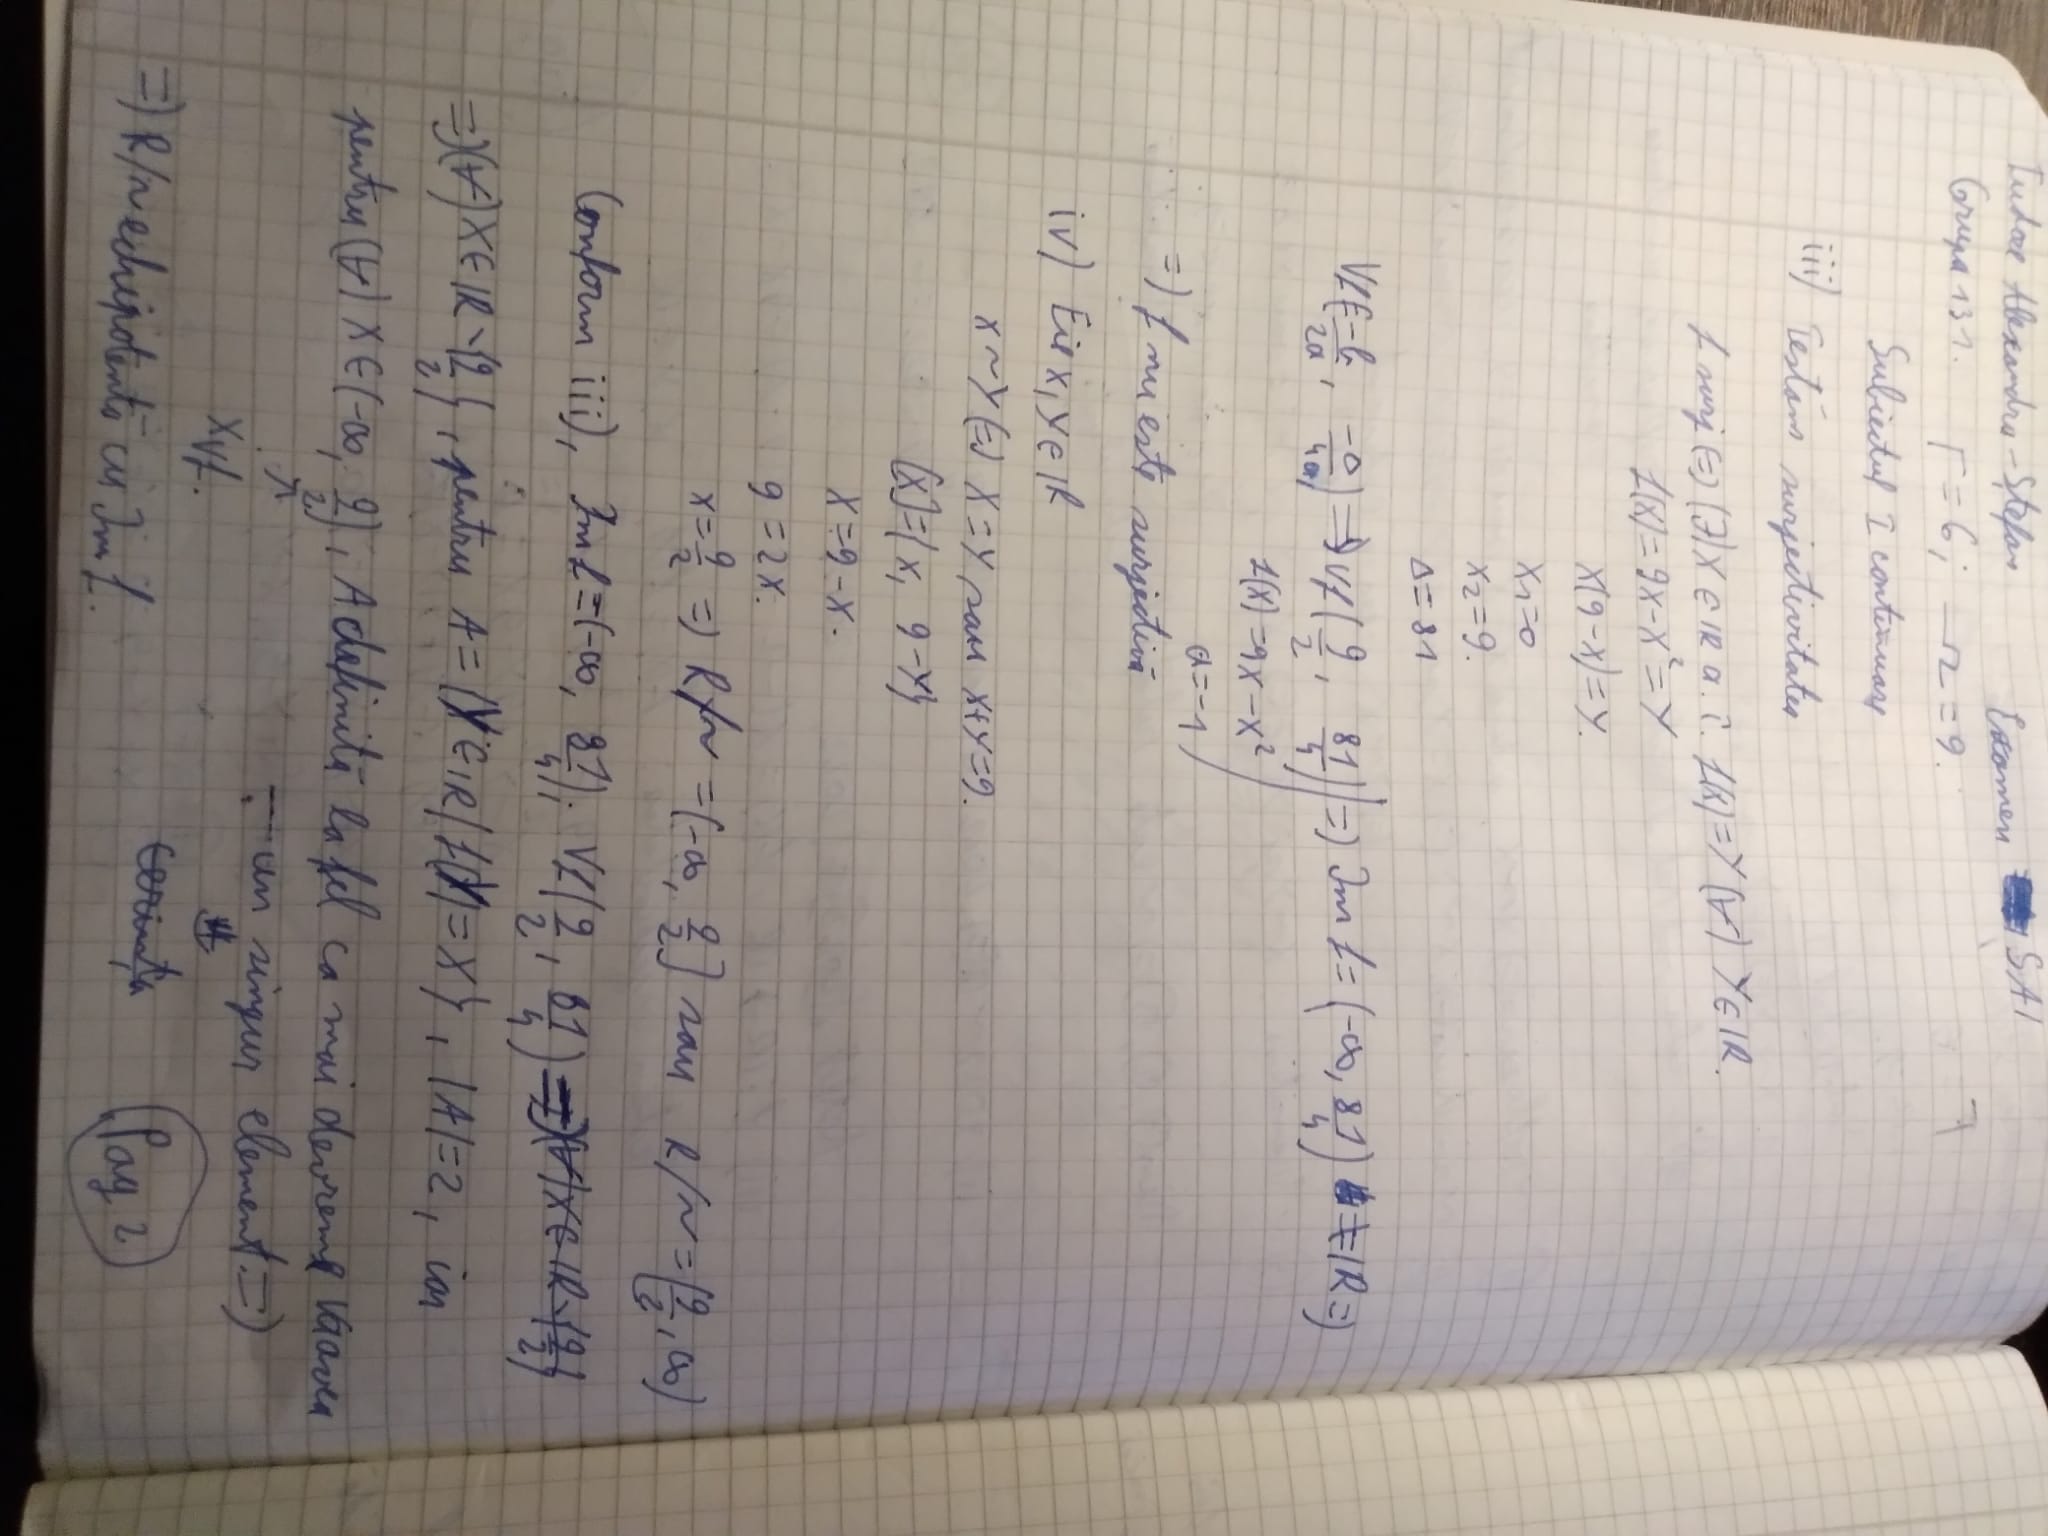 Tudose Alexandru-Ștefan Examen SAI
Grupa 131. Γ=6; Ω=9.
Subiectul I continuare
iii) Testăm surjectivitatea
f surj (=) (∃) X ∈ IR a. î. f(x)=Y (∀) Y∈IR.
f(X)=9x-x²=Y
x(9-x)=Y.
x1=0
x2=9.
Δ=81
Vf(-b/2a, -Δ/4a) =) Vf(9/2, 81/4) =) Im f=(-∞, 81/4) ≠IR=)
f(x)=9x-x²
a=-1
=) f nu este surjectivă
iv) Fie x, y∈IR
x~y (=) x=y sau x+y=9.
[x]={x, 9-y}
x=9-x.
9=2x.
x=9/2 =) R/~ =(-∞, 9/2] sau R/~=[9/2, ∞)
Conform iii), Im f=(-∞, 81/4); Vf(9/2, 81/4) =)(∀)X∈IR\{9/2}
=)(∀)X∈IR\{9/2}, pentru A={Y∈IR/f(Y)=X}, |A|=2, iar
pentru (∀) X∈(-∞, 9/2], A definită la fel ca mai devreme va avea
xVf.
un singur element.=)
cerința
=) R/~ echipotentă cu Im f.
Pag 2